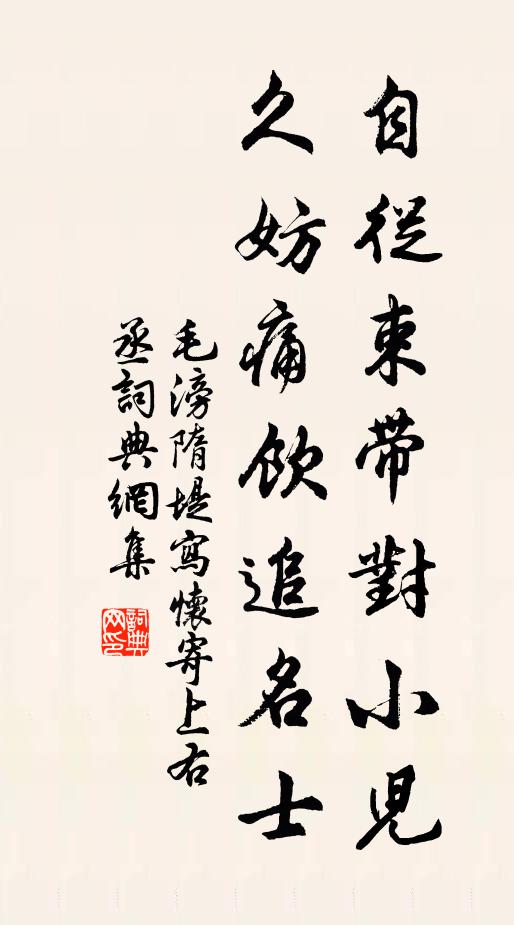 自從束帶對小兒
久妨痛飲追名士
毛滂隋堤寫懷寄上右
丞詞典網集
詞典
网印